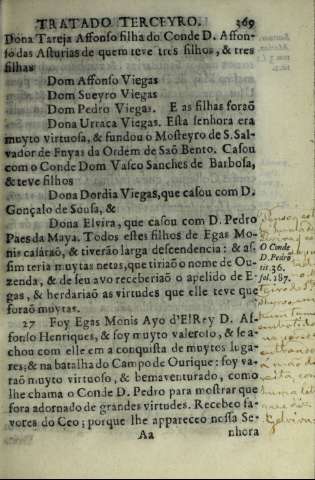 TRATADO TERCEYRO. 369
Dona Tareja Affonso filha do Conde D. Affon-
so das Asturias de quem teve tres filhos, & tres
filhas
Dom Affonso Viegas
Dom Sueyro Viegas
Dom Pedro Viegas. E as filhas foraõ
Dona Urraca Viegas. Esta senhora era
muyto virtuosa, & fundou o Mosteyro de S. Sal-
vador de Fuyas da Ordem de Saõ Bento. Casou
com o Conde Dom Vasco Sanches de Barbosa,
& teve filhos
Dona Dordia Viegas, que casou com D.
Gonçalo de Sousa, &
Dona Elvira, que casou com D. Pedro
Paes da Maya. Todos estes filhos de Egas Mo-
nis casáraõ, & tiveraõ larga descendencia: & as-
sim teria muytas netas, que tiriaõ o nome de Ou-
zenda, & de seu avo receberiaõ o apelido de E-
gas, & herdariaõ as virtudes que elle teve que
foraõ muytas.
O Conde
D. Pedro
tit 36.
fol. 187.
27 Foy Egas Monis Ayo d'ElRey D. Af-
fonso Henriques, & foy muyto valeroso, & se a-
chou com elle em a conquista de muytos luga-
res; & na batalha do Campo de Ourique: foy va-
raõ muyto virtuoso, & bemaventurado, como
lhe chama o Conde D. Pedro para mostrar que
fora adornado de grandes virtudes. Recebeo fa-
vores do Ceo; porque lhe appareceo nossa Se-
Aa nhora